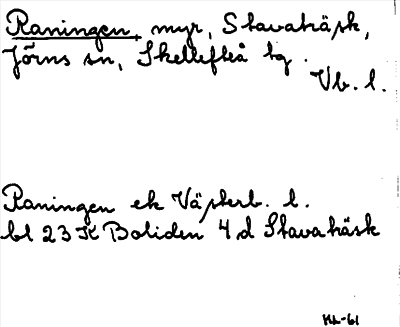 Raningen, myr, Stavaträsk,
Jörns sn, Skellefteå tg.
Vb. l.
Raningen ek Västerb. l.
bl 23 K Boliden 4 d Stavaträsk
HL-61